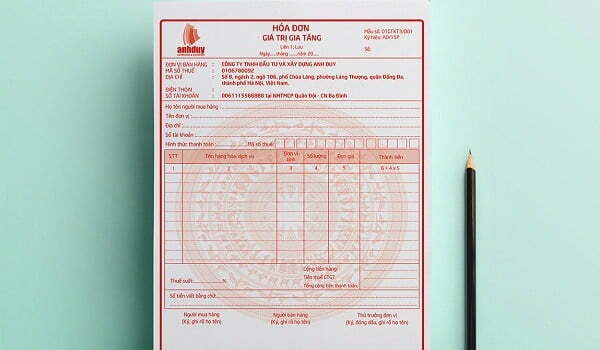 HÓA ĐƠN
GIÁ TRỊ GIA TĂNG
Liên 1: Lưu
Ngày.....tháng .......năm 20.....
Mẫu số: 01GTKT3/001
Ký hiệu: AD/15P
Số:
anhduy
ĐƠN VỊ BÁN HÀNG : CÔNG TY TNHH ĐẦU TƯ VÀ XÂY DỰNG ANH DUY
MÃ SỐ THUẾ : 0106780092
ĐỊA CHỈ : Số 8, ngách 2, ngõ 106, phố Chùa Láng, phường Láng Thượng, quận Đống Đa,
thành phố Hà Nội, Việt Nam.
ĐIỆN THOẠI :
SỐ TÀI KHOẢN : 0061115566888 tại NHTMCP Quân Đội - CN Ba Đình
Họ tên người mua hàng :
Tên đơn vị :
Địa chỉ :
Số tài khoản :
Hình thức thanh toán: Mã số thuế
STT Tên hàng hóa dịch vụ Đơn vị tính Số lượng Đơn giá Thành tiền
1 2 3 4 5 6 = 4 x 5
Cộng tiền hàng:
Thuế suất: % Tiền thuế GTGT:
Tổng cộng tiền thanh toán:
Số tiền viết bằng chữ:
Người mua hàng Người bán hàng Thủ trưởng đơn vị
(Ký, ghi rõ họ tên) (Ký, ghi rõ họ tên) (Ký, đóng dấu, ghi rõ họ tên)